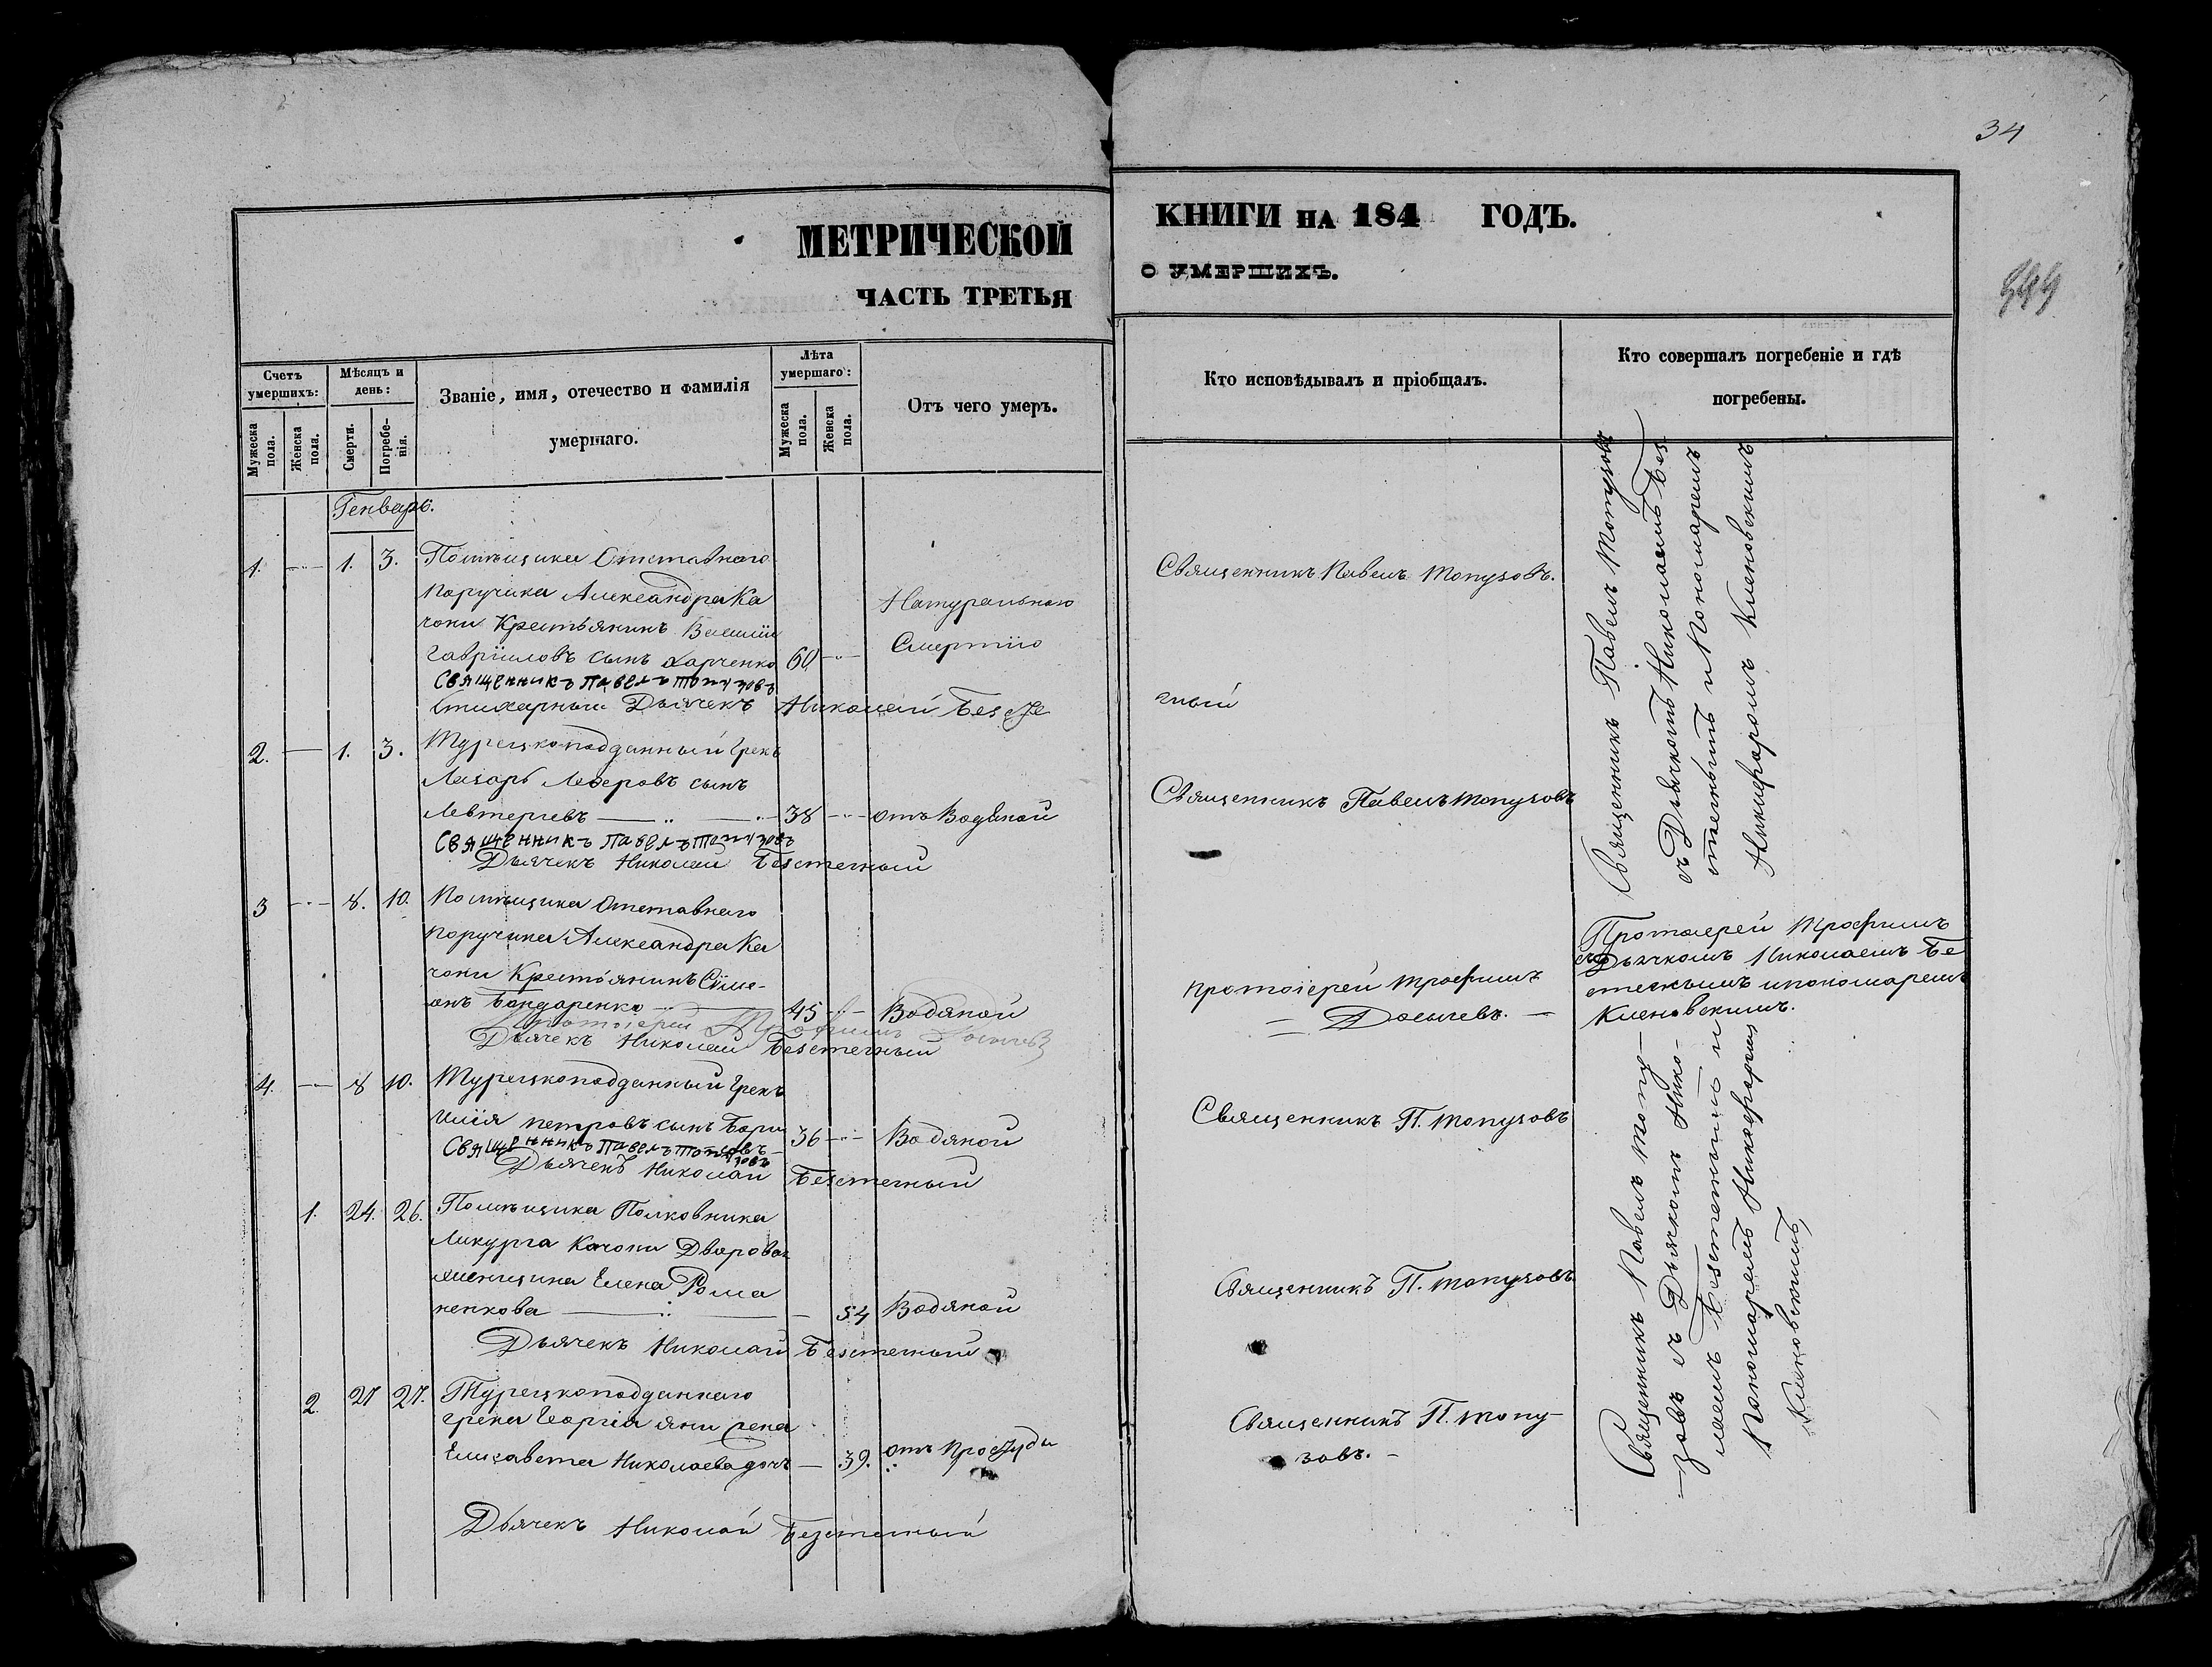 34
МЕТРИЧЕСКОЙ
ЧАСТЬ ТРЕТЬЯ
КНИГИ НА 184 ГОДЪ.
О УМЕРШИХЪ.
Счетъ умершихъ:
Мужеска пола.
Женска пола.
Мѣсяцъ и день:
Смерти.
Погребенія.
Званіе, имя, отечество и фамилія
умершаго.
Лѣта умершаго:
Мужеска пола.
Женска пола.
Отъ чего умеръ.
Кто исповѣдывалъ и пріобщалъ.
Кто совершалъ погребеніе и гдѣ
погребены.
Генварь.
1. 1. 3. Помѣщика Отставнаго
Поручика Александра Ка
чони Крестьянинъ Василій
Гавріиловъ сынъ Харченко 60
Натуральною
Смертію
Священникъ Павелъ Топузовъ.
Священникъ Павелъ Топузовъ
Стихарный Дьячекъ Николай Безсте
гный
2. 1. 3. Турецкоподданный Грекъ
Лазарь Лазеровъ сынъ
Левтеріевъ 38 отъ Водяной
Священникъ Павелъ Топузовъ
Священникъ Павелъ Топузовъ
Дьячекъ Николай Безстегный
Священникъ Павелъ Топузовъ
съ Дьячкомъ Николаемъ Без
стегнымъ и Пономаремъ
Никифоромъ Кленовскимъ
3 8. 10. Помѣщика Отставнаго
Поручика Александра Ка
чони Крестьянинъ Симе-
онъ Бондаренко 45 Водяной
Протоіерей Трофимъ
Досычевъ.
Протоіерей Трофимъ
Дьячекъ Николай Безстегный
Протоіерей Трофимъ
съ Дьячкомъ Николаемъ Бе
стегнымъ и пономаремъ
Кленовскимъ.
4. 8 10. Турецкоподданный Грекъ
Илія Петровъ сынъ 36 Водяной
Священникъ П. Топузовъ
Священникъ Павелъ Топузовъ
Дьячекъ Николай Безстегный
1. 24. 26. Помѣщика Полковника
Ликурга Качони Дворовая
женщина Елена Рома
ненкова 54 Водяной
Священникъ П. Топузовъ
Дьячекъ Николай Безстегный
2. 27 27. Турецкоподданнаго
грека Георгія Яни жена
Елисавета Николаева дочь 39. отъ Простуды
Священникъ П. Топу-
зовъ.
Дьячекъ Николай Безстегный
Священникъ Павелъ Топу-
зовъ съ Дьячкомъ Нико-
лаемъ Безстегнымъ и
Пономаремъ Никифоромъ
Кленовскимъ